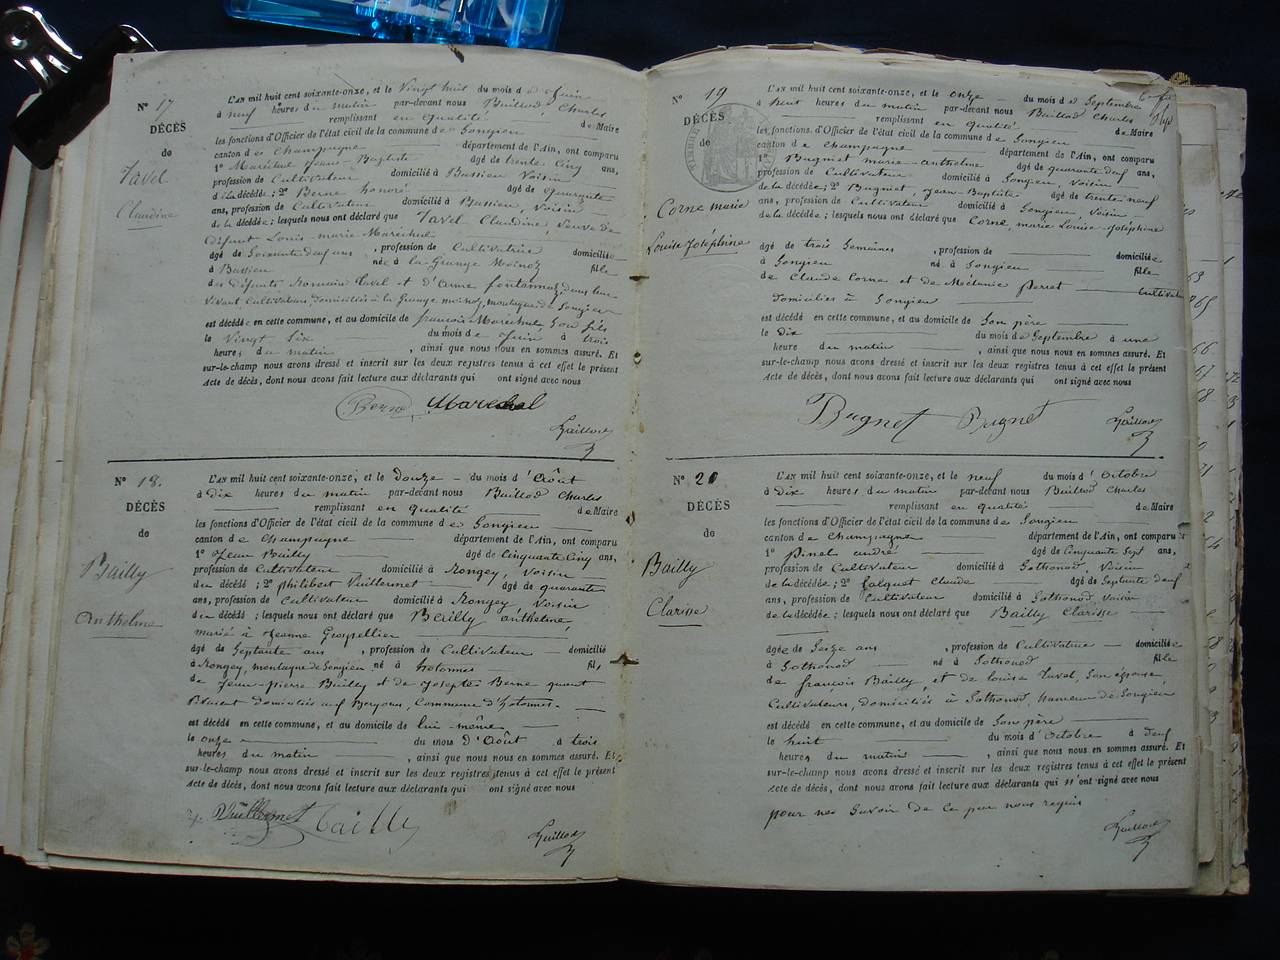 N° 17
DÉCÈS
de
Tavel
Claudine
L'AN mil huit cent soixante-onze, et le Vingt huit du mois de Juin
à neuf heures du matin par-devant nous Baillod Charles
remplissant en qualité de Maire
les fonctions d'Officier de l'état civil de la commune de Songieu
canton de Champagne département de l'Ain, ont comparu
1° Maréchal Jean-Baptiste âgé de trente cinq ans,
profession de Cultivateur domicilié à Bassieu Voisin
de la décédée; 2° Berne honoré âgé de quarante
ans, profession de Cultivateur domicilié à Bassieu, Voisin
de la décédée; lesquels nous ont déclaré que Tavel Claudine, Veuve de
défunt Louis-marie Maréchal
âgé de Soixante deuf ans, profession de Cultivatrice domiciliée
à Bassieu née à la Grange Moinoz fille
des défunts Romain Tavel et d'Anne fontannaz, dans leur
vivant Cultivateurs, domiciliés à la Grange moinoz, montagne de Songieu
est décédée en cette commune, et au domicile de françois Maréchal, Son fils
le Vingt Six du mois de Juin à trois
heures du matin, ainsi que nous nous en sommes assuré. Et
sur-le-champ nous avons dressé et inscrit sur les deux registres tenus à cet effet le présent
acte de décès, dont nous avons fait lecture aux déclarants qui ont signé avec nous
Berne Marechal
Baillod
N° 18.
DÉCÈS
de
Bailly
Anthelme
L'AN mil huit cent soixante-onze, et le douze du mois d'Août
à dix heures du matin par-devant nous Baillod Charles
remplissant en qualité de Maire
les fonctions d'Officier de l'état civil de la commune de Songieu
canton de Champagne département de l'Ain, ont comparu
1° Jean Bailly âgé de Cinquante Cinq ans,
profession de Cultivateur domicilié à Rongey, Voisin
du décédé; 2° philibert Vuillermet âgé de quarante
ans, profession de Cultivateur domicilié à Rongey, Voisin
du décédé; lesquels nous ont déclaré que Bailly anthelme,
marié à Jeanne
âgé de Septante ans, profession de Cultivateur domicilié
à Rongey, montagne de Songieu né à hotonnes fils
de Jean-pierre Bailly et de Josepte Berne quant
vivaient domiciliés aux Bergons, Commune d'hotonnes.
est décédé en cette commune, et au domicile de lui-même
le onze du mois d'Août à trois
heures du matin, ainsi que nous nous en sommes assuré. Et
sur-le-champ nous avons dressé et inscrit sur les deux registres tenus à cet effet le présent
acte de décès, dont nous avons fait lecture aux déclarants qui ont signé avec nous
Vuillermet Bailly
Baillod
N° 19
DÉCÈS
de
Corne marie
Louise Joséphine
L'AN mil huit cent soixante-onze, et le onze du mois de Septembre
à huit heures du matin par-devant nous Baillod Charles
remplissant en qualité de Maire
les fonctions d'Officier de l'état civil de la commune de Songieu
canton de Champagne département de l'Ain, ont comparu
1° Bugniet marie-anthelme âgé de quarante deuf ans,
profession de Cultivateur domicilié à Songieu, Voisin
de la décédée; 2° Bugniet, Jean-Baptiste âgé de trente neuf
ans, profession de Cultivateur domicilié à Songieu, Voisin
de la décédée; lesquels nous ont déclaré que Corne marie Louise-Joséphine
âgé de trois Semaines, profession de domiciliée
à Songieu né à Songieu fille
de Claude Corne et de Mélanie perret Cultivateurs
domiciliés à Songieu
est décédé en cette commune, et au domicile de Son père
le dix du mois de Septembre à une
heure du matin, ainsi que nous nous en sommes assuré. Et
sur-le-champ nous avons dressé et inscrit sur les deux registres tenus à cet effet le présent
acte de décès, dont nous avons fait lecture aux déclarants qui ont signé avec nous
Bugnet Bugnet
Baillod
N° 20
DÉCÈS
de
Bailly
Clarisse
L'AN mil huit cent soixante-onze, et le neuf du mois d'Octobre
à dix heures du matin par-devant nous Baillod Charles
remplissant en qualité de Maire
les fonctions d'Officier de l'état civil de la commune de Songieu
canton de Champagne département de l'Ain, ont comparu
1° Pinel andré âgé de Cinquante Sept ans,
profession de Cultivateur domicilié à Sothonod, Voisin
de la décédée; 2° Jalquet Claude âgé de Septante deuf
ans, profession de Cultivateur domicilié à Sothonod, Voisin
de la décédée; lesquels nous ont déclaré que Bailly Clarisse
âgée de Seize ans, profession de Cultivatrice domiciliée
à Sothonod né à Sothonod fille
de françois Bailly, et de louise Tavel, Son épouse,
Cultivateurs, domiciliés à Sothonod, hameau de Songieu
est décédé en cette commune, et au domicile de Son père
le huit du mois d'Octobre à deuf
heures du matin, ainsi que nous nous en sommes assuré. Et
sur-le-champ nous avons dressé et inscrit sur les deux registres tenus à cet effet le présent
acte de décès, dont nous avons fait lecture aux déclarants qui n'ont signé avec nous
pour ne Savoir de ce par nous requis
Baillod